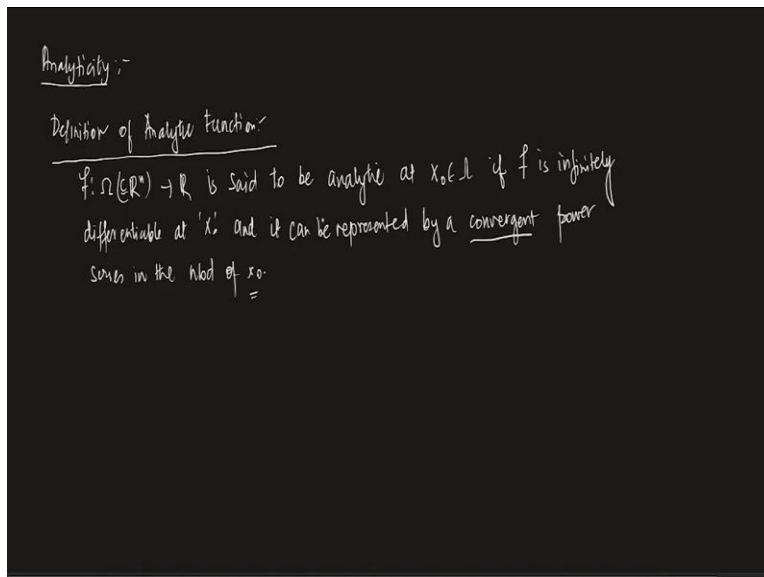 Analyticity:-
Definition of Analytic Function:-
f: Ω(⊆ℝⁿ) → ℝ is said to be analytic at x₀ ∈ Ω if f is infinitely
differentiable at 'x₀' and it can be represented by a convergent power
series in the nbd of x₀.